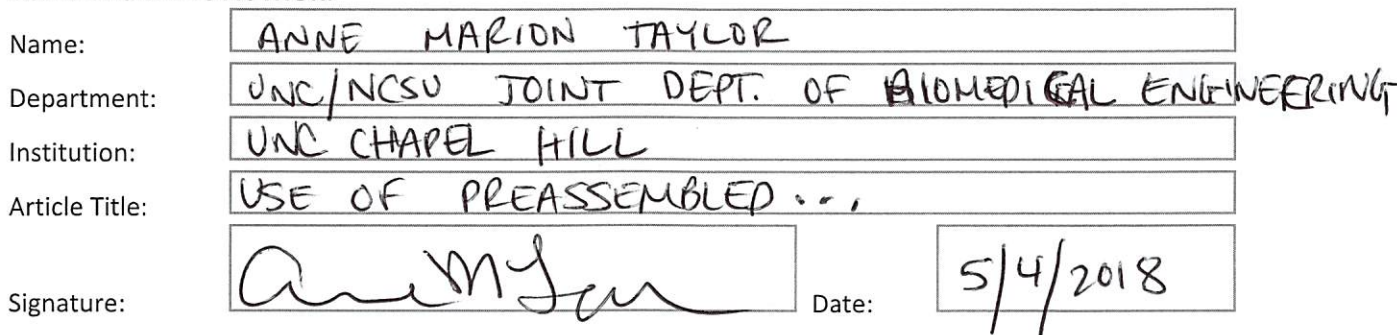 Name: ANNE MARION TAYLOR
Department: UNC/NCSU JOINT DEPT. OF BIOMEDICAL ENGINEERING
Institution: UNC CHAPEL HILL
Article Title: USE OF PREASSEMBLED...
Signature: Date: 5/4/2018